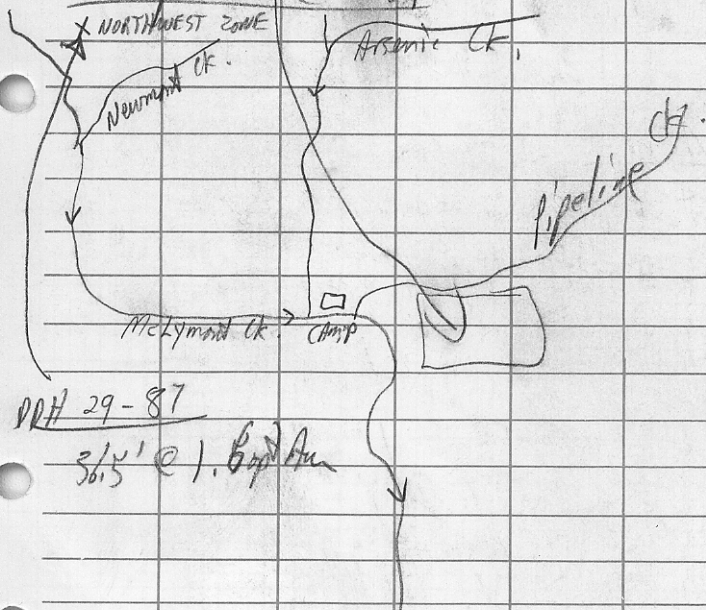 X NORTHWEST ZONE
Arsenic Ck.
Newmont Ck.
Pipeline Ck.
McLymont Ck.
CAMP
DDH 29-87
36.5' @ 1.